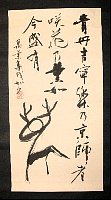 青丹吉寧樂乃京師者
咲花乃薫如
今盛有